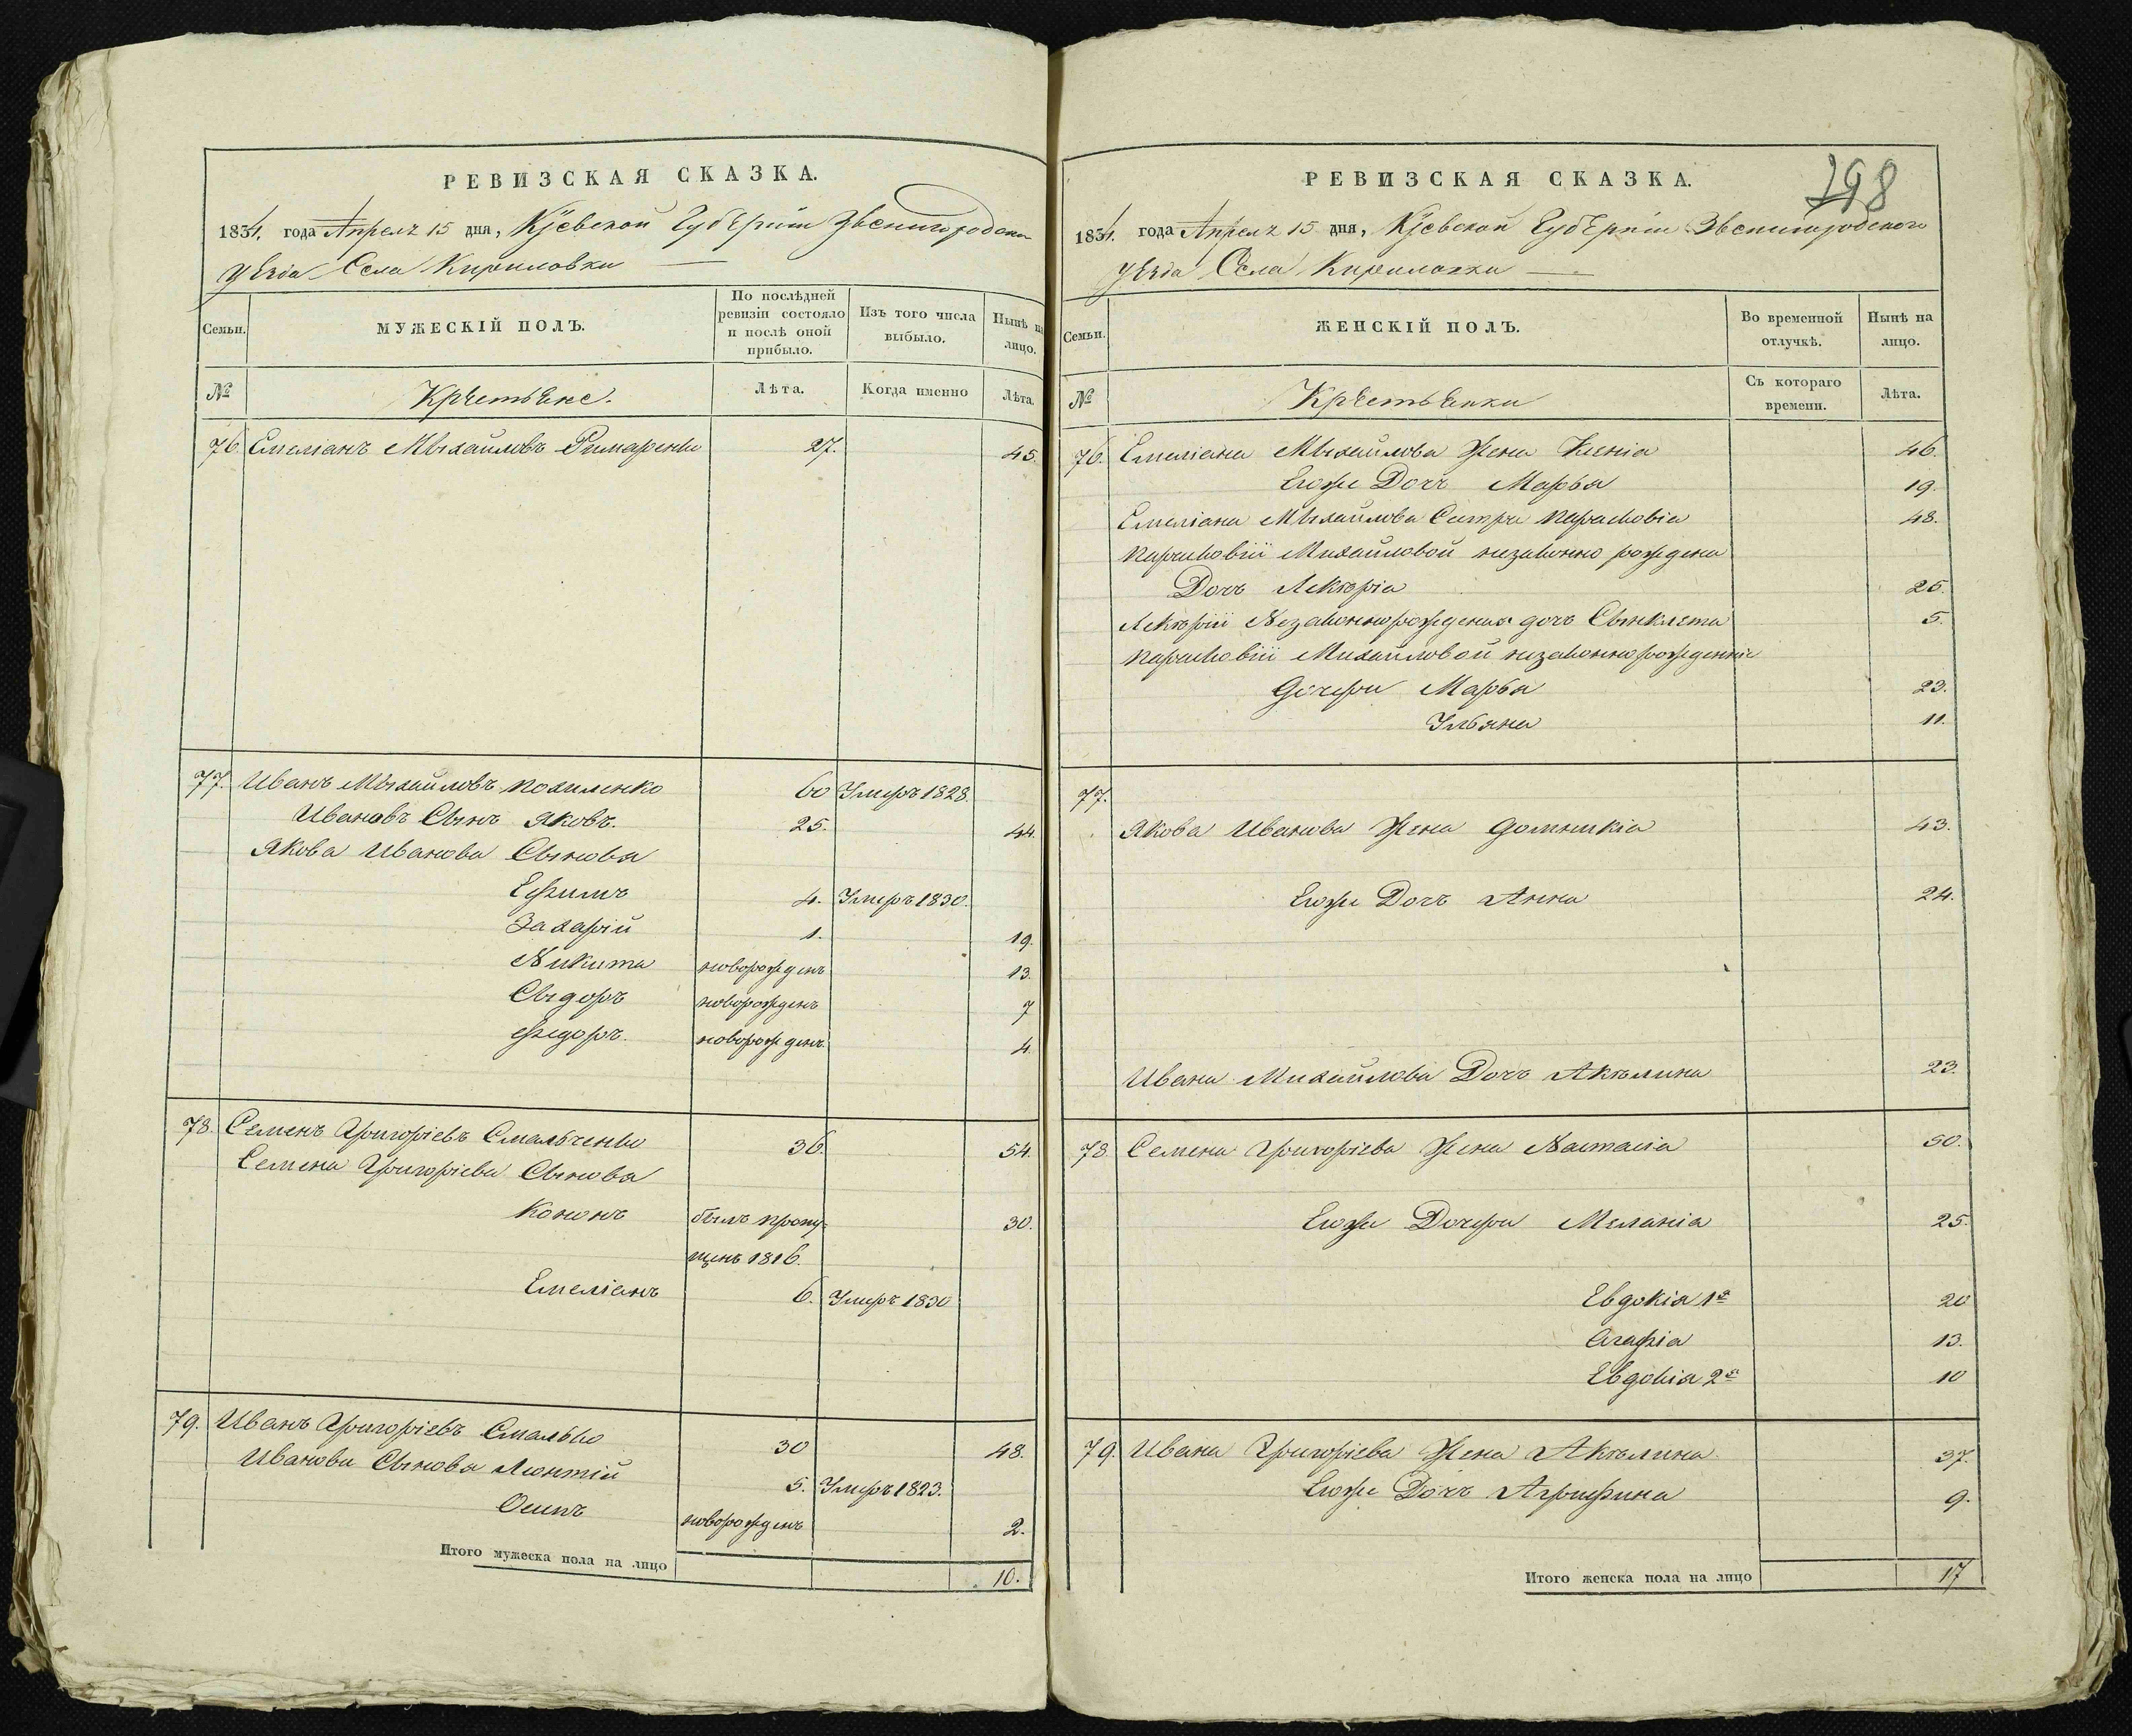 РЕВИЗСКАЯ СКАЗКА.
1834. года Апреля 15 дня, Кіевской Губерніи Звенигородска
уезда Села Кириловки
Семьи.
МУЖЕСКІЙ ПОЛЪ.
По послѣдней ревизіи состояло и послѣ оной прибыло.
Изъ того числа выбыло.
Нынѣ на лицо.
№
Крестьяне.
Лѣта.
Когда именно
Лѣта.
76. Емеліанъ Мыхайловъ Римаренко 27. 45.
77. Иванъ Мыхайловъ Похиленко 60 Умеръ 1828.
Ивановъ Сынъ Яковъ. 25. 44.
Якова Иванова Сыновя
Ефимъ 4. Умеръ 1830.
Захарій 1. 19.
Никита новорожденъ 13.
Сыдоръ новорожденъ 7
Федоръ. новорожденъ 4.
78. Семенъ Григоріевъ Смальченко 36. 54.
Семена Григоріева Сыновя
Кононъ былъ пропу- 30.
щенъ 1816.
Емеліанъ 6. Умеръ 1830
79. Иванъ Григоріевъ Смалько 30 48.
Иванови Сыновя Леонтій 5. Умеръ 1823.
Осипъ новорожденъ 2.
Итого мужеска пола на лицо 10.
298
РЕВИЗСКАЯ СКАЗКА.
1834. года Апреля 15 дня, Кіевской Губерніи Звенигородского
уезда Села Кириловки
Семьи.
ЖЕНСКІЙ ПОЛЪ.
Во временной отлучкѣ.
Нынѣ на лицо.
№
Крестьянки
Съ котораго времени.
Лѣта.
76. Емеліана Мыхайлова Жена Ксенія 46.
Егоже Дочъ Марья 19.
Емеліана Мыхайлова Систра Парасковіа 48.
Парасковіи Михайловой незаконно рождена
Дочъ Лекеріа 25.
Лекеріи Незаконнорожденая дочъ Сынклета 5.
Парасковіи Михайловой незаконнорожденніе
Дочери Марья 23.
Ульяна 11.
77.
Якова Иванова Жена Домникіа 43.
Егоже Дочъ Анна 24.
Ивана Михайлова Дочъ Акелина 23.
78. Семена Григоріева Жена Настасіа 50.
Егоже Дочери Меланіа 25.
Евдокія 1я 20
Агафіа 13.
Евдокіа 2я 10
79. Ивана Григоріева Жена Акелина 37.
Егоже Дочъ Агрифина 9.
Итого женска пола на лицо 17